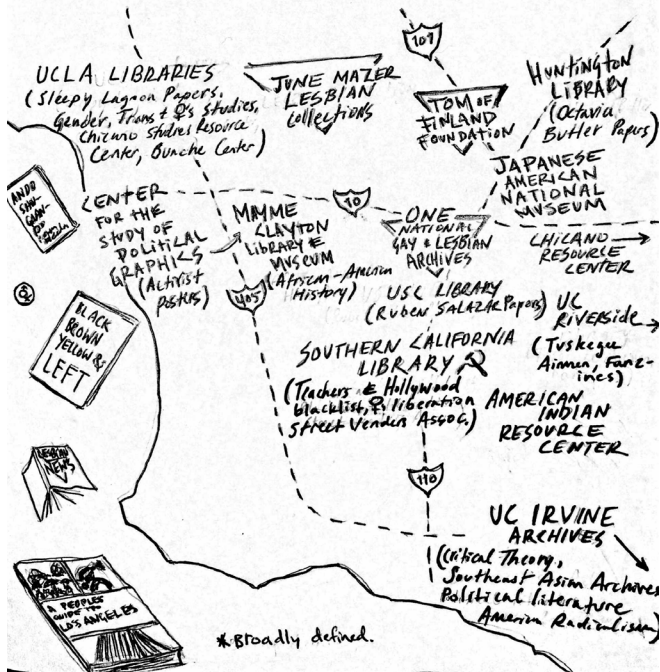 UCLA LIBRARIES
(Sleepy Lagoon Papers,
Gender, Trans & ♀'s Studies,
Chicano Studies Resource
Center, Bunche Center)
JUNE MAZER
LESBIAN
Collections
101
TOM OF
FINLAND
FOUNDATION
HUNTINGTON
LIBRARY
(Octavia
Butler Papers)
JAPANESE
AMERICAN
NATIONAL
MUSEUM
CENTER
FOR THE
STUDY OF
POLITICAL
GRAPHICS
(Activist
posters)
10
MAYME
CLAYTON
LIBRARY &
MUSEUM
(African-American
History)
405
ONE
NATIONAL
GAY & LESBIAN
ARCHIVES
CHICANO
RESOURCE
CENTER
USC LIBRARY
(Ruben SALAZAR Papers)
UC
RIVERSIDE
(Tuskegee
Airmen, Fanz-
ines)
SOUTHERN CALIFORNIA
LIBRARY
(Teachers & Hollywood
blacklist, ♀ liberation
Street Venders Assoc.)
AMERICAN
INDIAN
RESOURCE
CENTER
110
UC IRVINE
ARCHIVES
(Critical Theory,
Southeast Asian Archives
Political literature
America Radicalism)
BLACK
BROWN
YELLOW &
LEFT
LESBIAN
NEWS
A PEOPLE'S
GUIDE TO
LOS ANGELES
*Broadly defined.